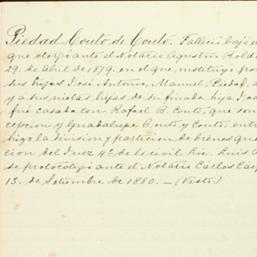 Piedad Couto de Couto. Falleció bajo el
que otorgó ante el Notario Agustín Rold
29. de Abril de 1879. en el que instituyó por
sus hijos José Antonio, Manuel, Piedad, a
y á sus nietas hijas de su finada hija Jos
fué casada con Rafael B. Couto, que son
cepcion y Guadalupe Couto y Couto, entre
hizo la division y particion de bienes que
cion del Juez 4º de lo civil Lic. Luis G
se protocolizó ante el Notario Carlos Cas
13. de Setiembre de 1880. — (Vesto)